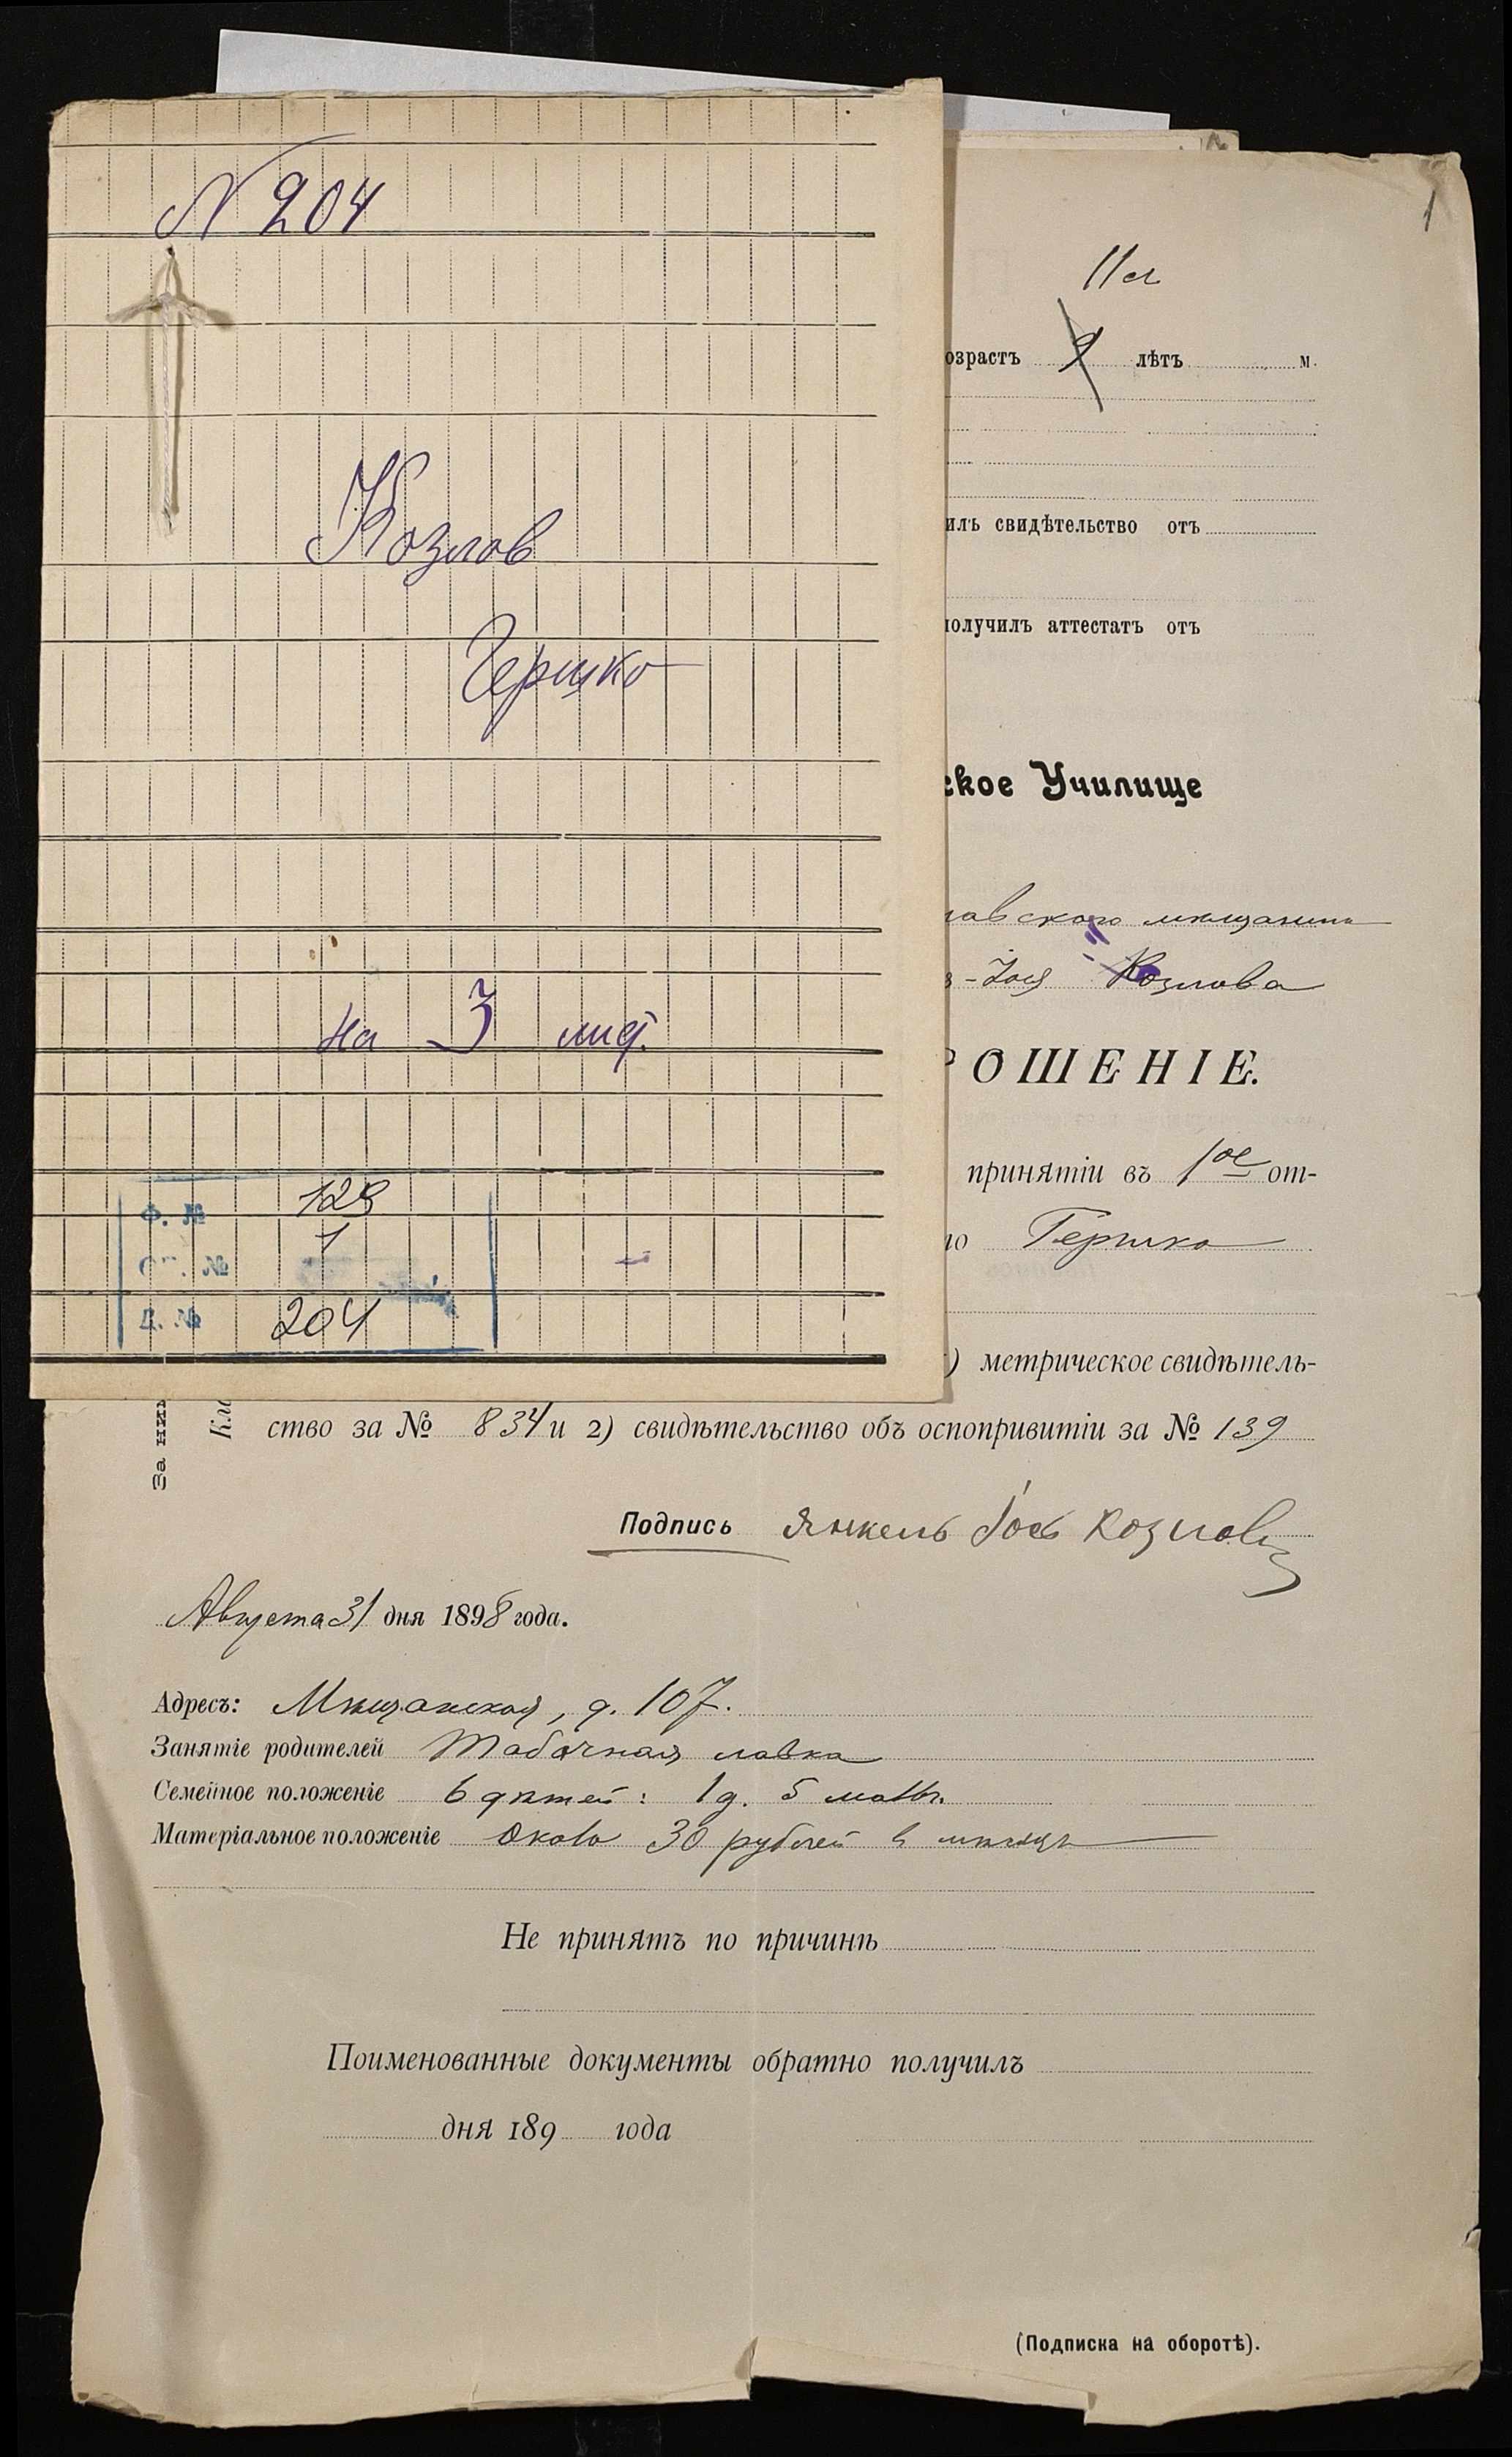 N 204
Козлов
Гершко
на 3 лист.
Ф. № 128
ОП. № 1
Д. № 204
1
11 л
озрастъ 9 лѣтъ м.
илъ свидѣтельство отъ
получилъ аттестатъ отъ
ское Училище
лавского мѣщанина
Козлова
РОШЕНІЕ.
принятіи въ 1ое от-
Гершко
) метрическое свидѣтель-
ство за № 834 и 2) свидѣтельство объ оспопривитіи за № 139
Подпись Янкель Іось Козловъ
Августа 31 дня 1898 года.
Адресъ: Мѣщанская, д. 107.
Занятіе родителей Табачная лавка
Семейное положеніе 6 дѣтей: 1 д. 5 мальч.
Матеріальное положеніе Около 30 рублей в мѣсяцъ
Не принятъ по причинѣ
Поименованные документы обратно получилъ
дня 189 года
(Подписка на оборотѣ).
За ни
Кла